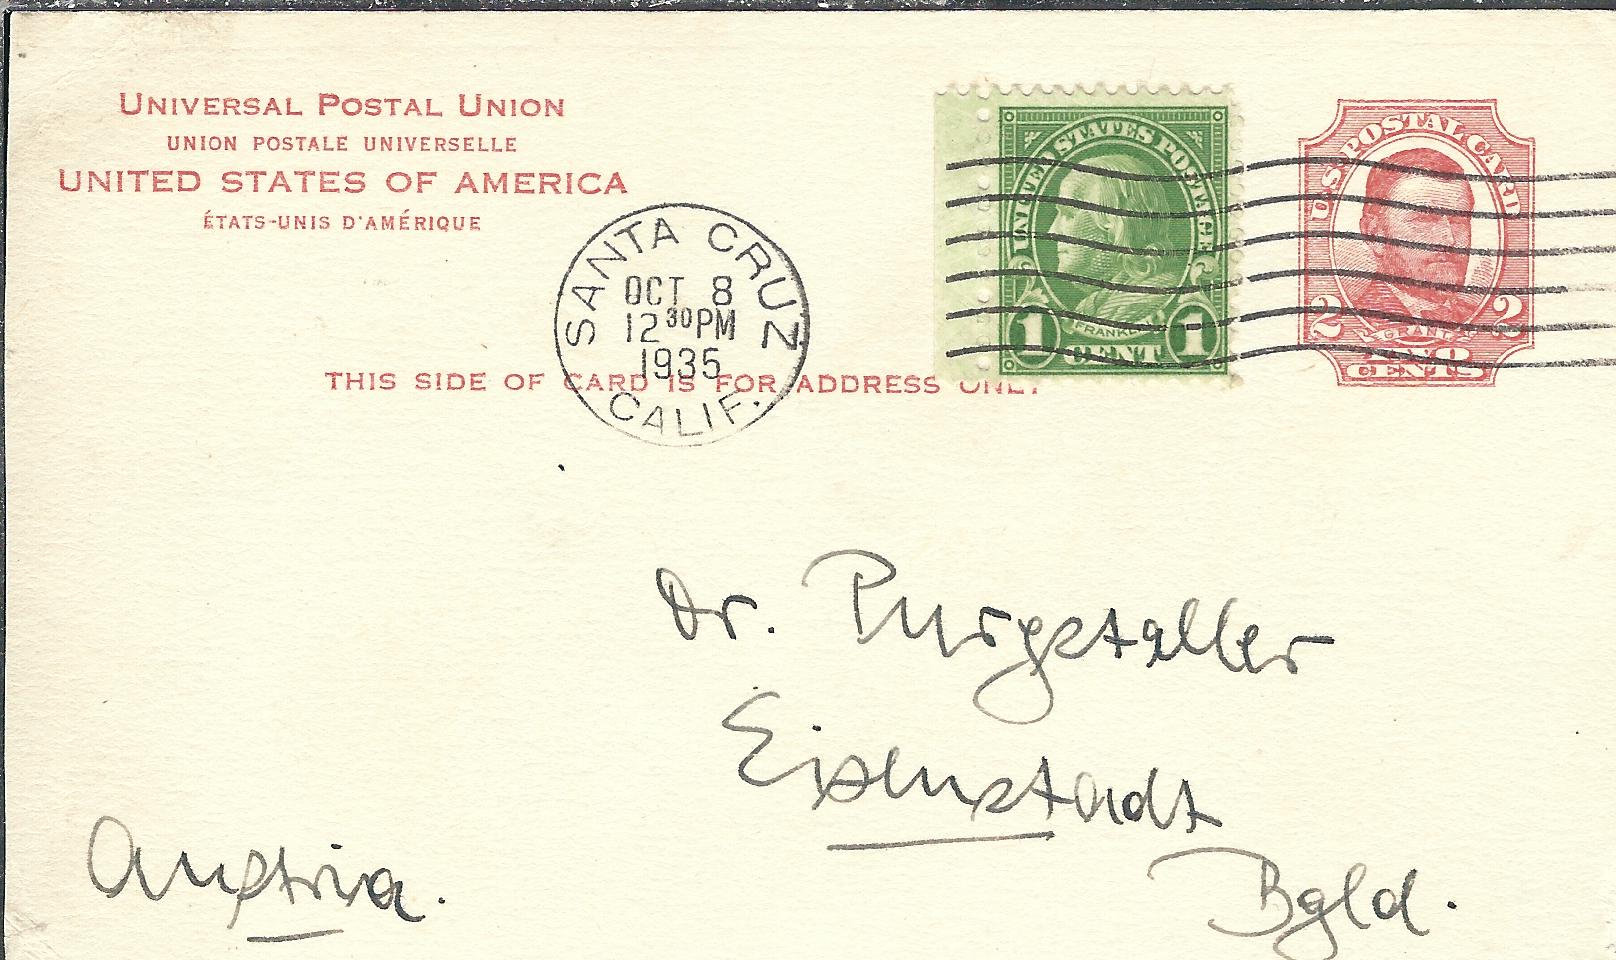 UNIVERSAL POSTAL UNION
UNION POSTALE UNIVERSELLE
UNITED STATES OF AMERICA
ÉTATS-UNIS D'AMÉRIQUE
THIS SIDE OF CARD IS FOR ADDRESS ONLY
SANTA CRUZ
OCT 8
12 30 PM
1935
CALIF.
UNITED STATES POSTAGE
FRANKLIN
1 CENT 1
U.S. POSTAL CARD
2 GRANT 2
CENTS
Dr. Purgstaller
Eisenstadt
Bgld.
Austria.